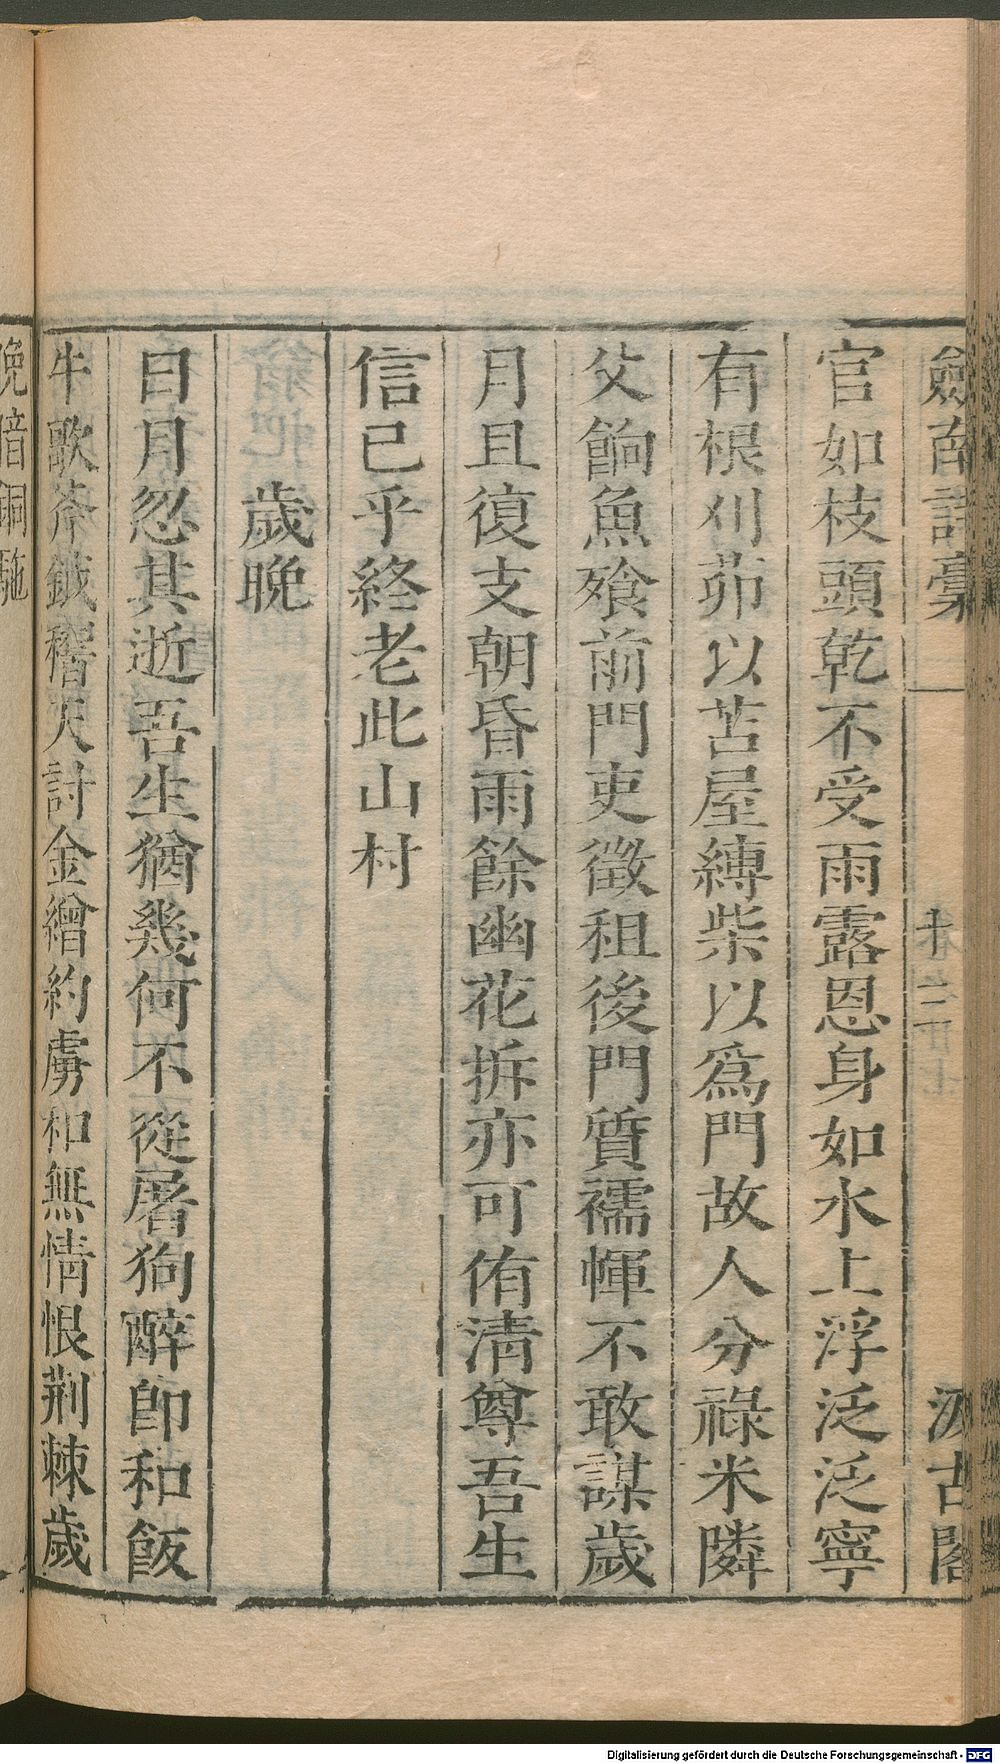 劍南詩稾
汲古閣
官如枝頭乾不受雨露恩身如水上浮泛泛寧
有根刈茆以苫屋縛柴以爲門故人分祿米隣
父餉魚飱前門吏徵租後門質襦惲不敢謀歲
月且復支朝昏雨餘幽花拆亦可侑清尊吾生
信已乎終老此山村
歲晚
日月忽其逝吾生猶幾何不從屠狗醉卽和飯
牛歌斧鉞稽天討金繒約虜和無情恨荆棘歲
晚暗銅駞
Digitalisierung gefördert durch die Deutsche Forschungsgemeinschaft - DFG